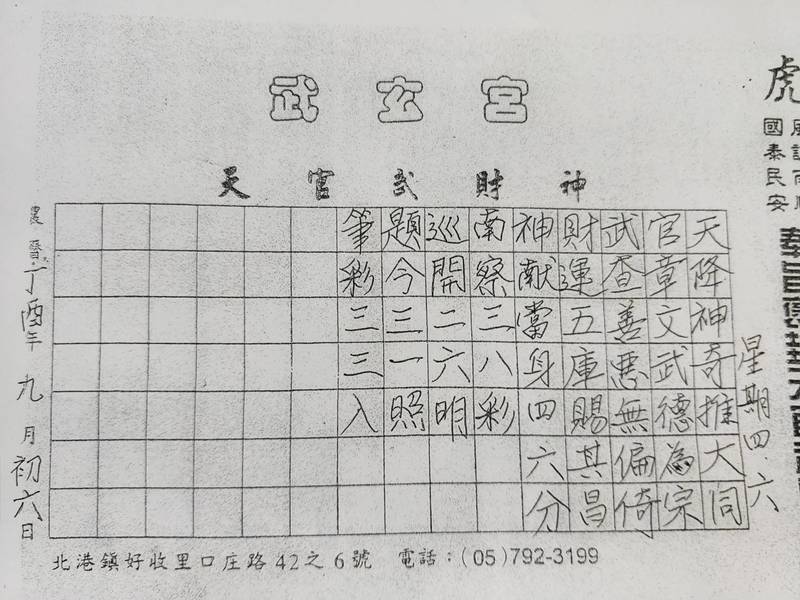 武玄宮
天官武財神
虎
國泰民安
星期四.六
天降神奇推大同
官章文武德為宗
武查善惡無偏倚
財運五庫賜其昌
神献當身四六分
南察三八彩
巡開二六明
題今三一照
筆彩三三入
農曆:丁酉年九月初六日
北港鎮好收里口庄路42之6號 電話：(05)792-3199